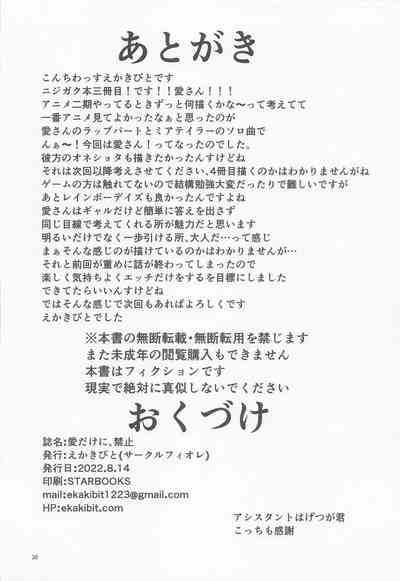 あとがき
こんちわっすえかきびとです
ニジガク本三冊目！です！！愛さん！！！
アニメ二期やってるときずっと何描くかな～って考えてて
一番アニメ見てよかったなぁと思ったのが
愛さんのラップパートとミアテイラーのソロ曲で
んぁ～！今回は愛さん！ってなったのでした。
彼方のオネショタも描きたかったんすけどね
それは次回以降考えさせてください、4冊目描くのかはわかりませんがね
ゲームの方は触れてないので結構勉強大変だったりで難しいですが
あとレインボーデイズも良かったんですよね
愛さんはギャルだけど簡単に答えを出さず
同じ目線で考えてくれる所が魅力だと思います
明るいだけでなく一歩引ける所、大人だ…って感じ
まぁそんな感じのが描けているのかはわかりませんが…
それと前回が重めに話が終わってしまったので
楽しく気持ちよくエッチだけをするを目標にしました
できてたらいいんすけどね
ではそんな感じで次回もあればよろしくです
えかきびとでした
※本書の無断転載・無断転用を禁じます
また未成年の閲覧購入もできません
本書はフィクションです
現実で絶対に真似しないでください
おくづけ
誌名:愛だけに、禁止
発行:えかきびと(サークルフィオレ)
発行日:2022.8.14
印刷:STARBOOKS
mail:ekakibit1223@gmail.com
HP:ekakibit.com
アシスタントはげつが君
こっちも感謝
30